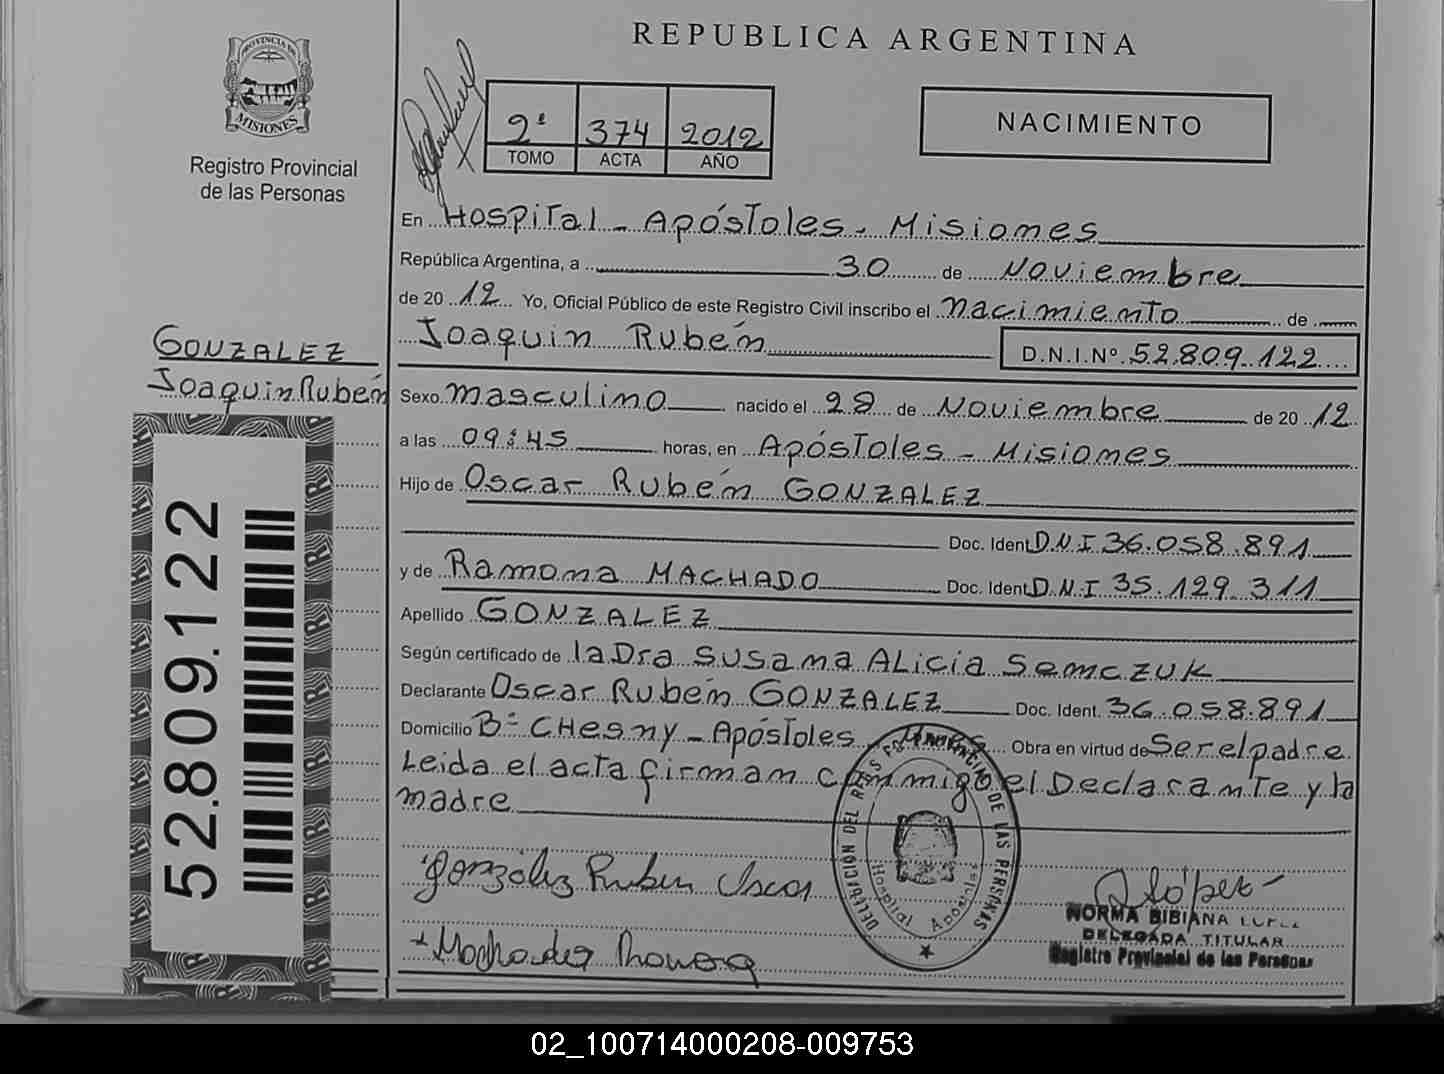 REPUBLICA ARGENTINA
PROVINCIA DE
MISIONES
Registro Provincial
de las Personas
2º 374 2012
TOMO ACTA AÑO
NACIMIENTO
En Hospital - Apóstoles - Misiones
República Argentina, a 30 de Noviembre
de 20 12 Yo, Oficial Público de este Registro Civil inscribo el nacimiento de
Joaquin Rubén D.N.I.Nº 52.809.122
GONZALEZ
Joaquin Rubén
Sexo masculino nacido el 29 de Noviembre de 20 12
a las 09:45 horas, en Apóstoles - Misiones
Hijo de Oscar Rubén GONZALEZ
Doc. Ident. D.N.I 36.058.891
y de Ramona MACHADO Doc. Ident. D.N.I 35.129.311
Apellido GONZALEZ
Según certificado de la Dra Susana Alicia Semczuk
Declarante Oscar Rubén GONZALEZ Doc. Ident. 36.058.891
Domicilio Bº Chesny - Apóstoles - Mnes Obra en virtud de Ser el padre
Leida el acta firman conmigo el Declarante y la
madre
52.809.122
González Ruben Oscar
DELEGACIÓN DEL REG. PROVINCIAL DE LAS PERSONAS
Hospital Apóstoles
López
NORMA BIBIANA LOPEZ
DELEGADA TITULAR
Registro Provincial de las Personas
02_100714000208-009753